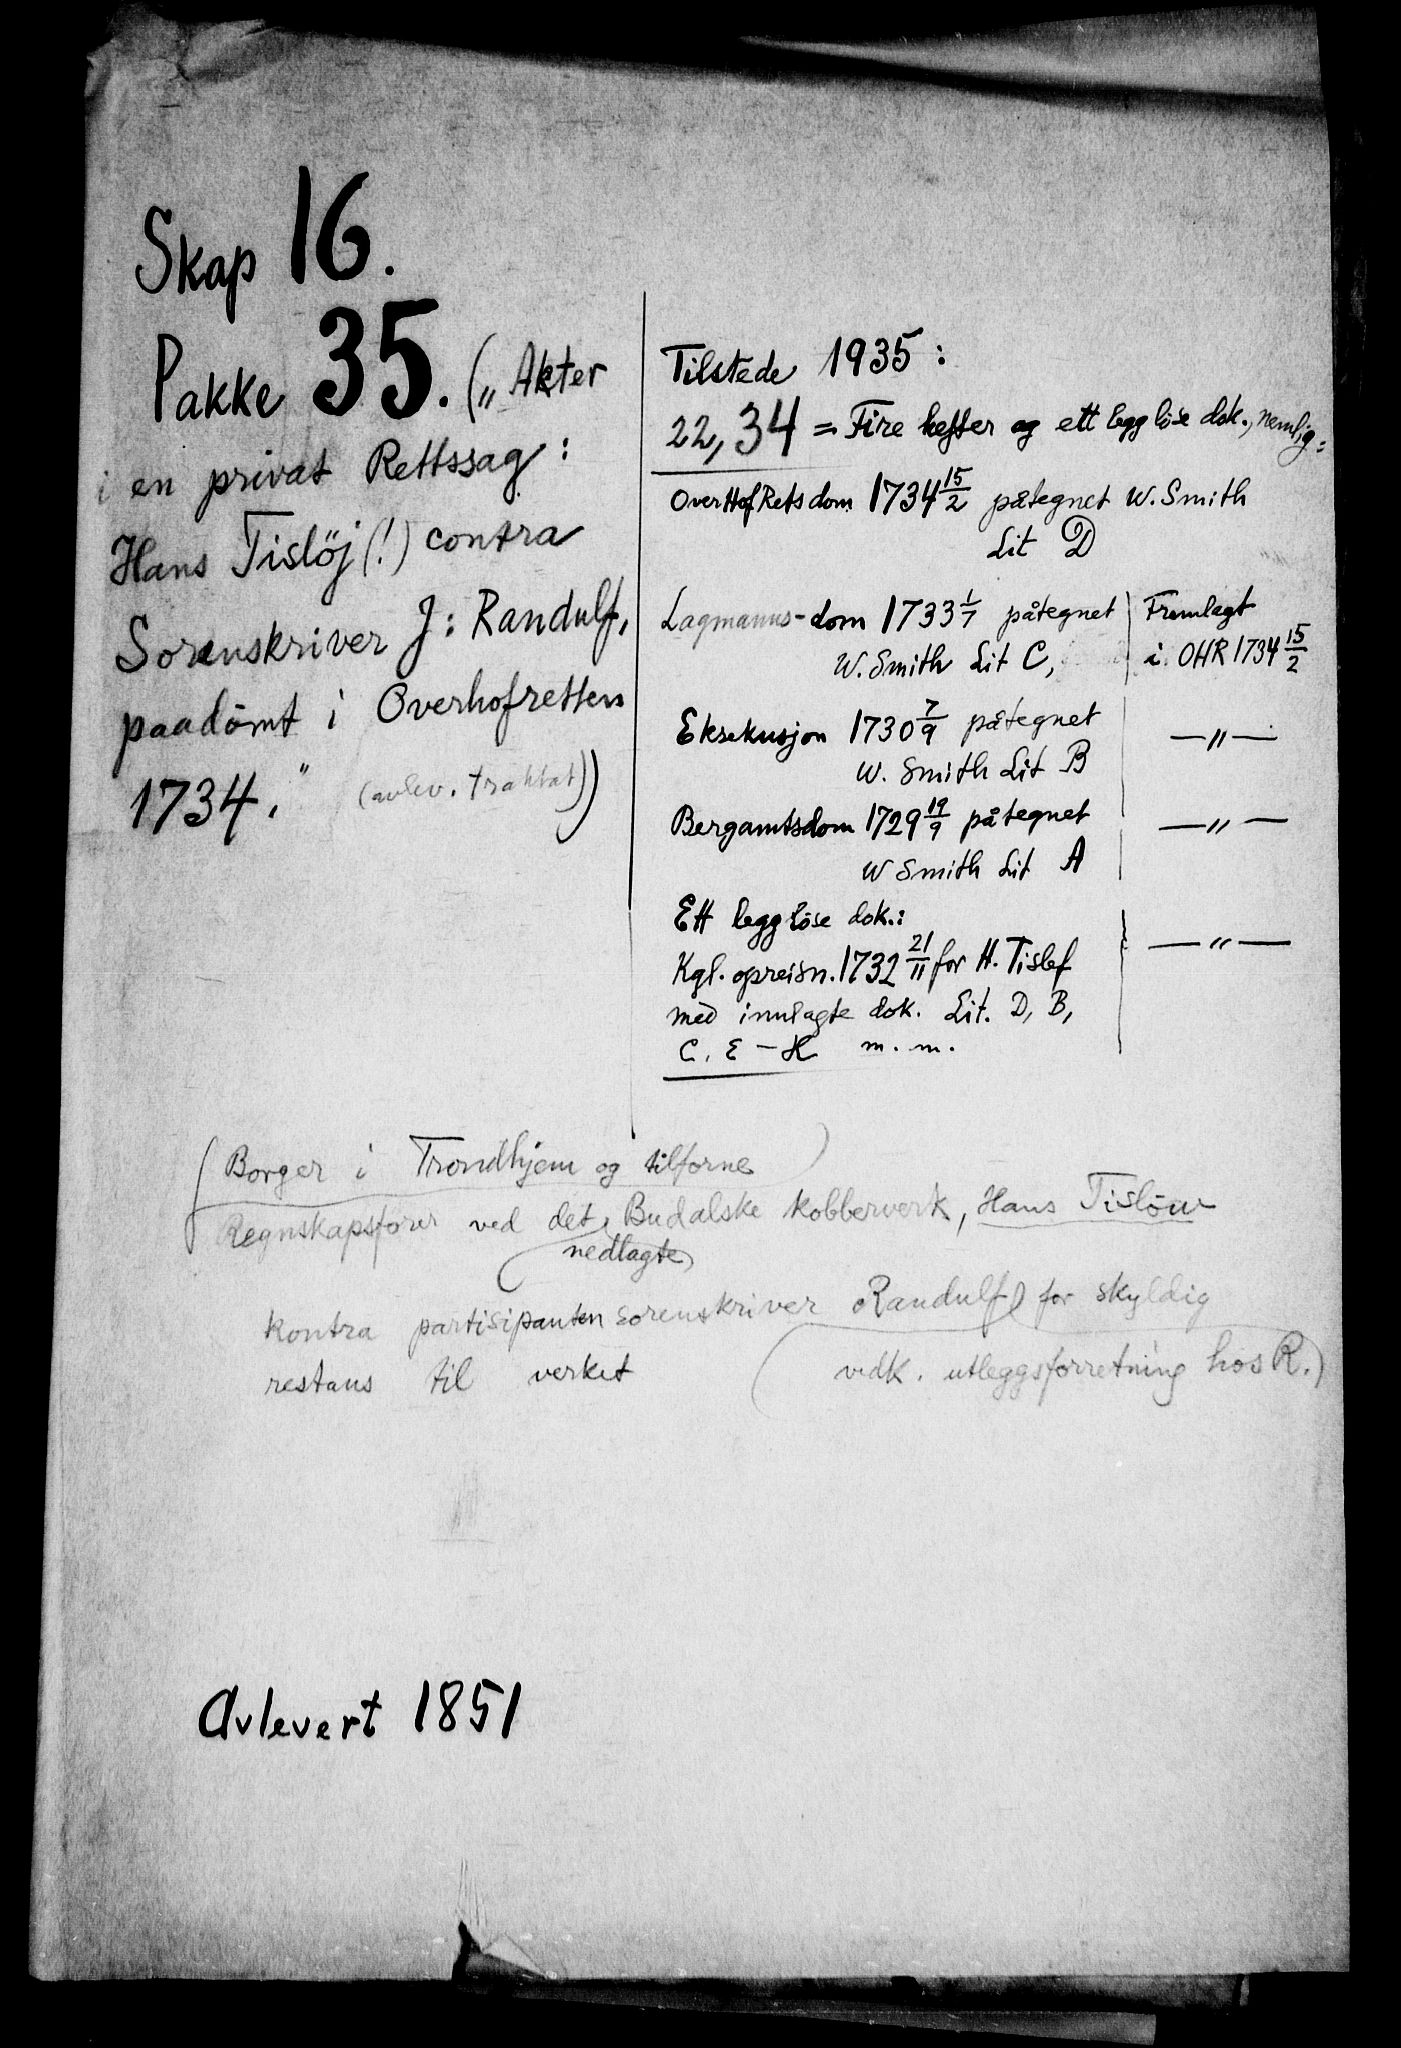 Skap 16.
Pakke 35. („Akter
i en privat Rettssag:
Hans Tislöj (!) contra
Sorenskriver J: Randulf,
paadömt i Overhofretten
1734." (avlev. traktat))
Tilstede 1935:
22,34 = Fire hefter og ett legg löse dok., nemlig:
OverHofRets dom 1734 15/2 påtegnet W. Smith
Lit D
Lagmanns-dom 1733 1/7 påtegnet
W. Smith Lit C,
Fremlagt
i OHR 1734 15/2
Eksekusjon 1730 7/9 påtegnet
W. Smith Lit B
—„—
Bergamtsdom 1729 19/9 påtegnet
W Smith Lit A
—„—
Ett legg löse dok.:
Kgl. opreisn. 1732 21/11 for H. Tislef
med innlagte dok. Lit. D, B,
C, E – H m. m.
—„—
(Borger i Trondhjem og tilforne)
Regnskapsförer ved det Budalske kobberverk, Hans Tislöw
nedlagte
kontra partisipanten sorenskriver Randulf for skyldig
restans til verket (vedk. utleggsforretning hos R.)
Avlevert 1851